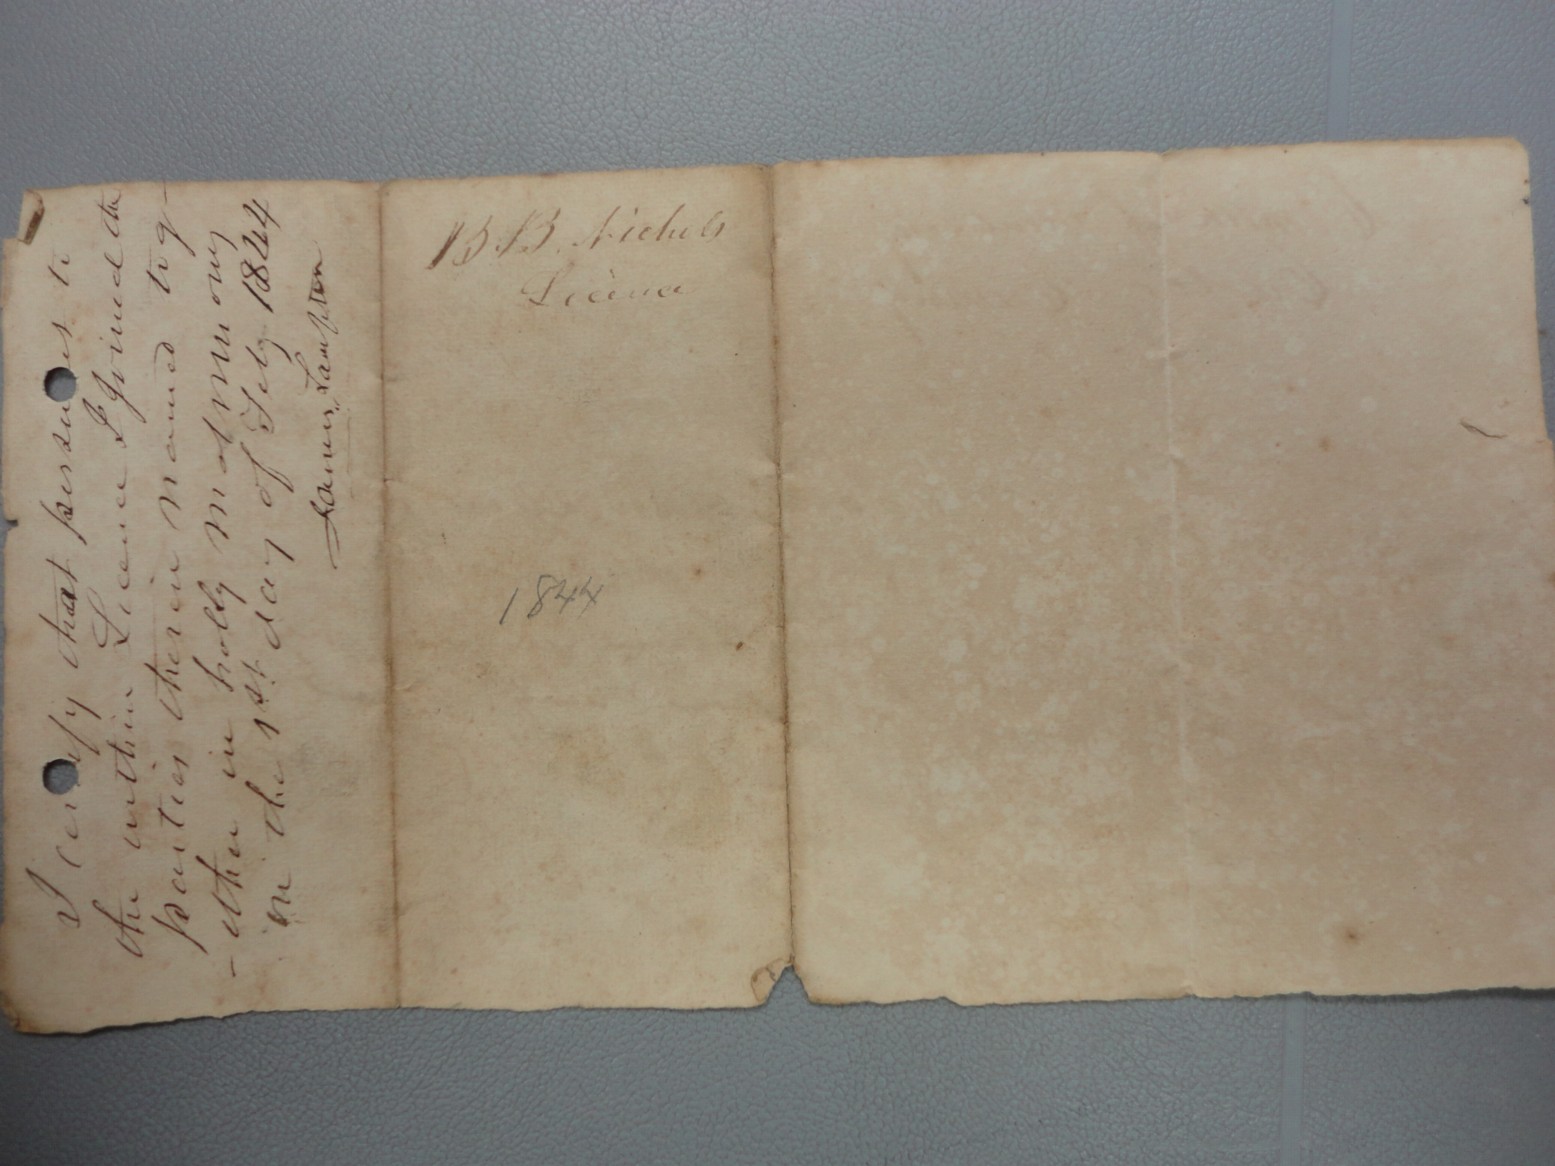 I certify that persuas to
the within Licence I Joined the
parties therein named tog-
-ether in holly matrimony
on the 1st day of Feby 1844
James Lampton
B. B. Nichols
Licence
1844